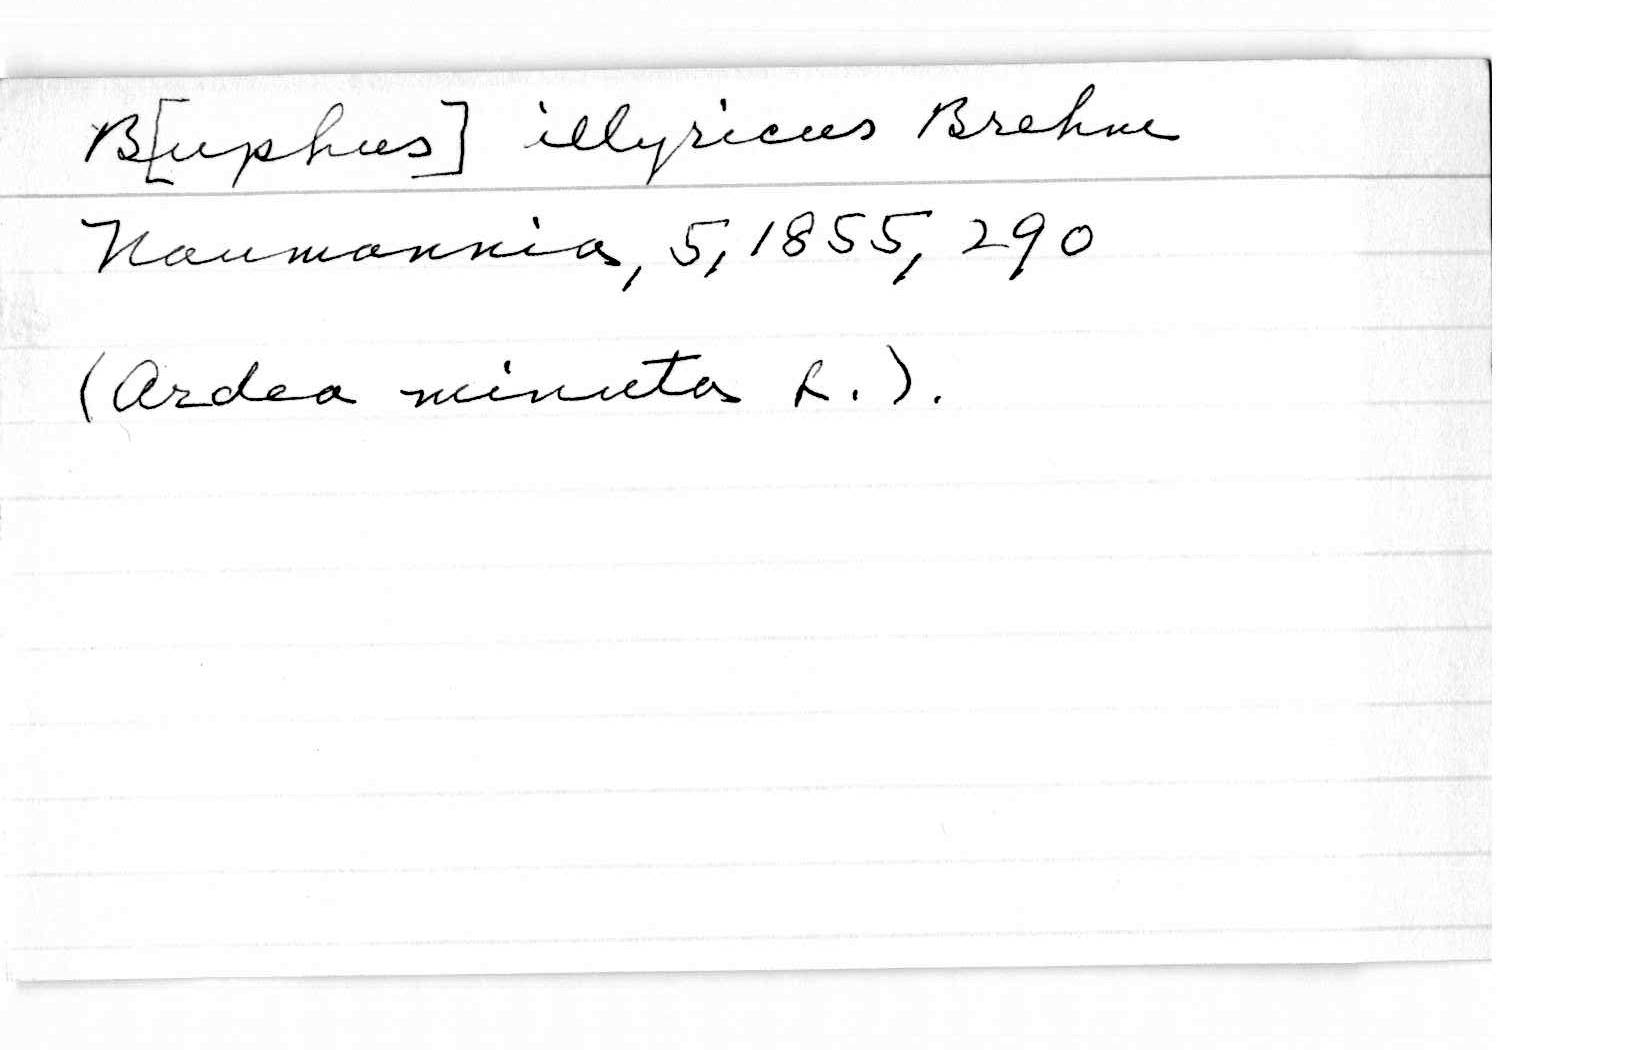 B[uphus] illyricus Brehm
Naumannia, 5, 1855, 290
(Ardea minuta L.).